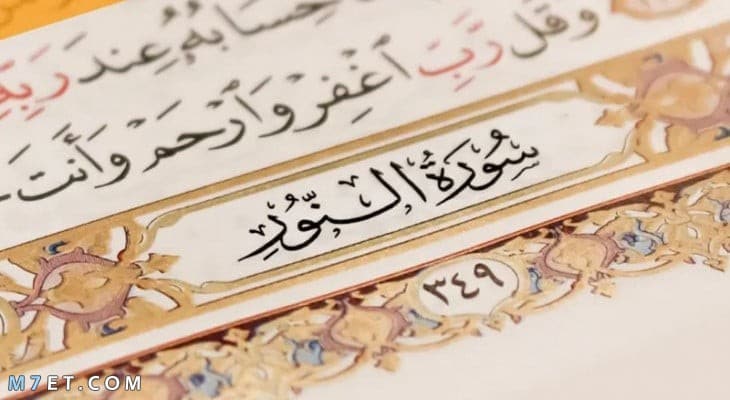 حِسَابُهُۥ عِندَ رَبِّهِۦ
وَقُل رَّبِّ ٱغْفِرْ وَٱرْحَمْ وَأَنتَ
سُورَةُ النُّورِ
٣٤٩
M7ET.COM